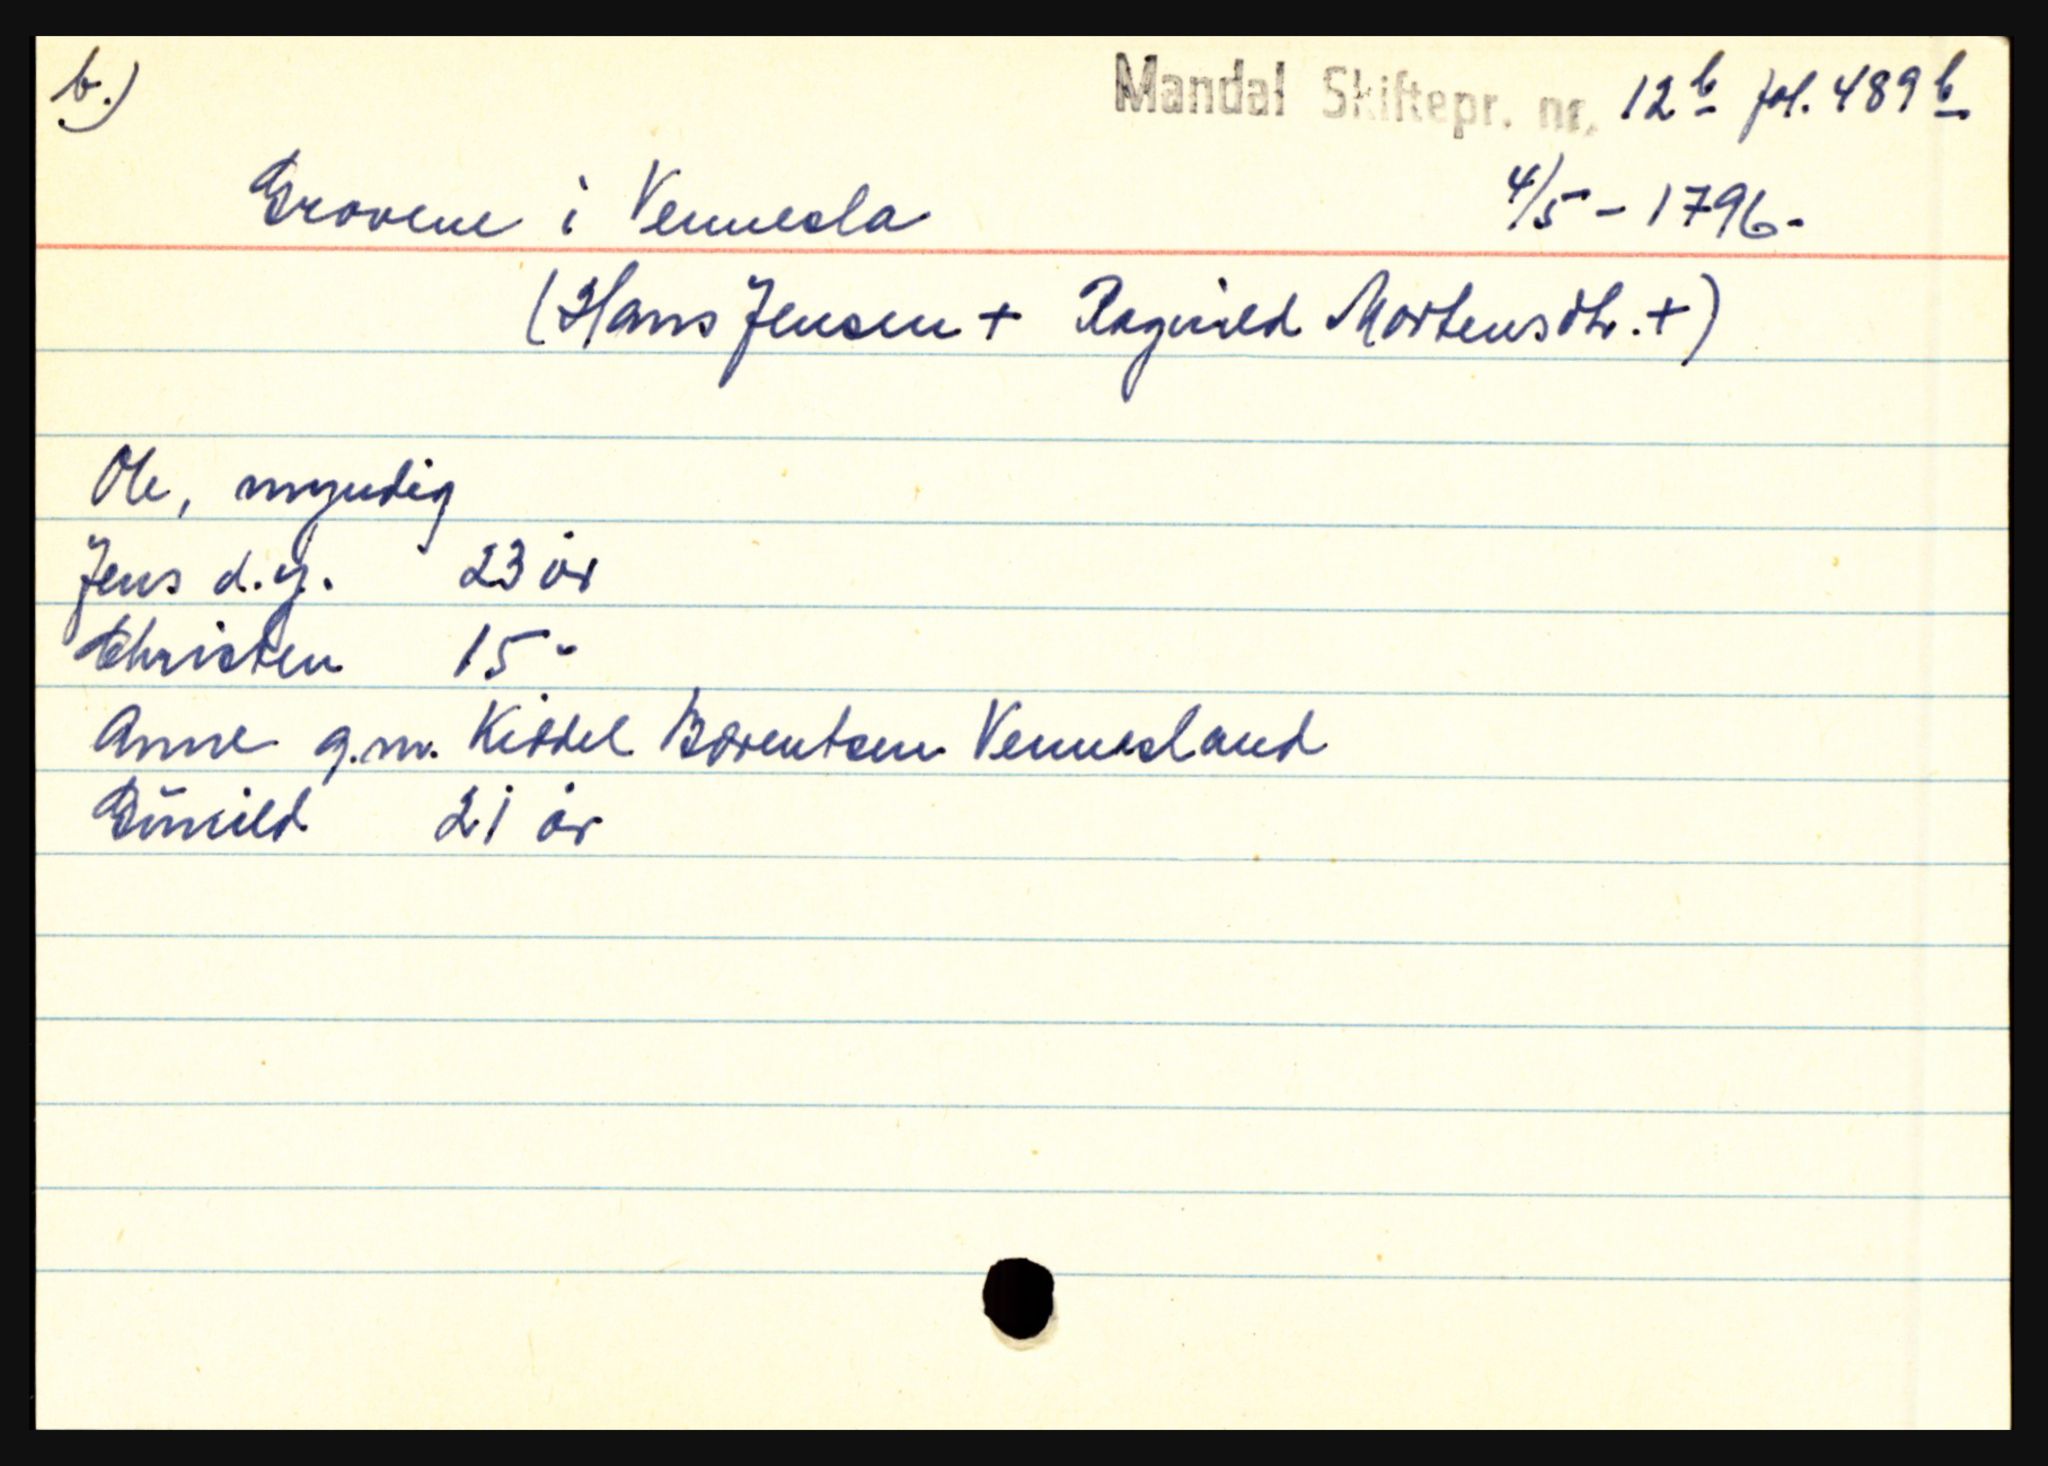 b.)
Mandal Skiftepr. nr. 12b fol. 489b
Grovene i Vennesla 4/5 - 1796.
(Hans Jensen + Ragnild Mortensdtr. +)
Ole, myndig
Jens d.y. 23 år
Christen 15 "
Anne g.m. Kiddel Børentsen Vennesland
Gŭnild 21 år